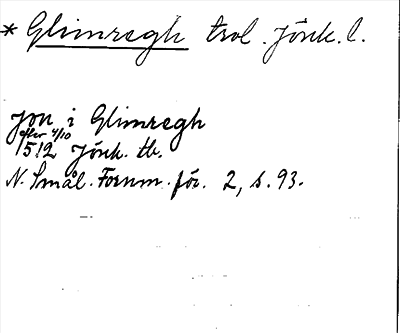 * Glimregh trol. Jönk. l.
Jon i Glimregh
efter 4/10
1512 Jönk. tb.
N. Smål. Fornm. för. 2, s. 93.